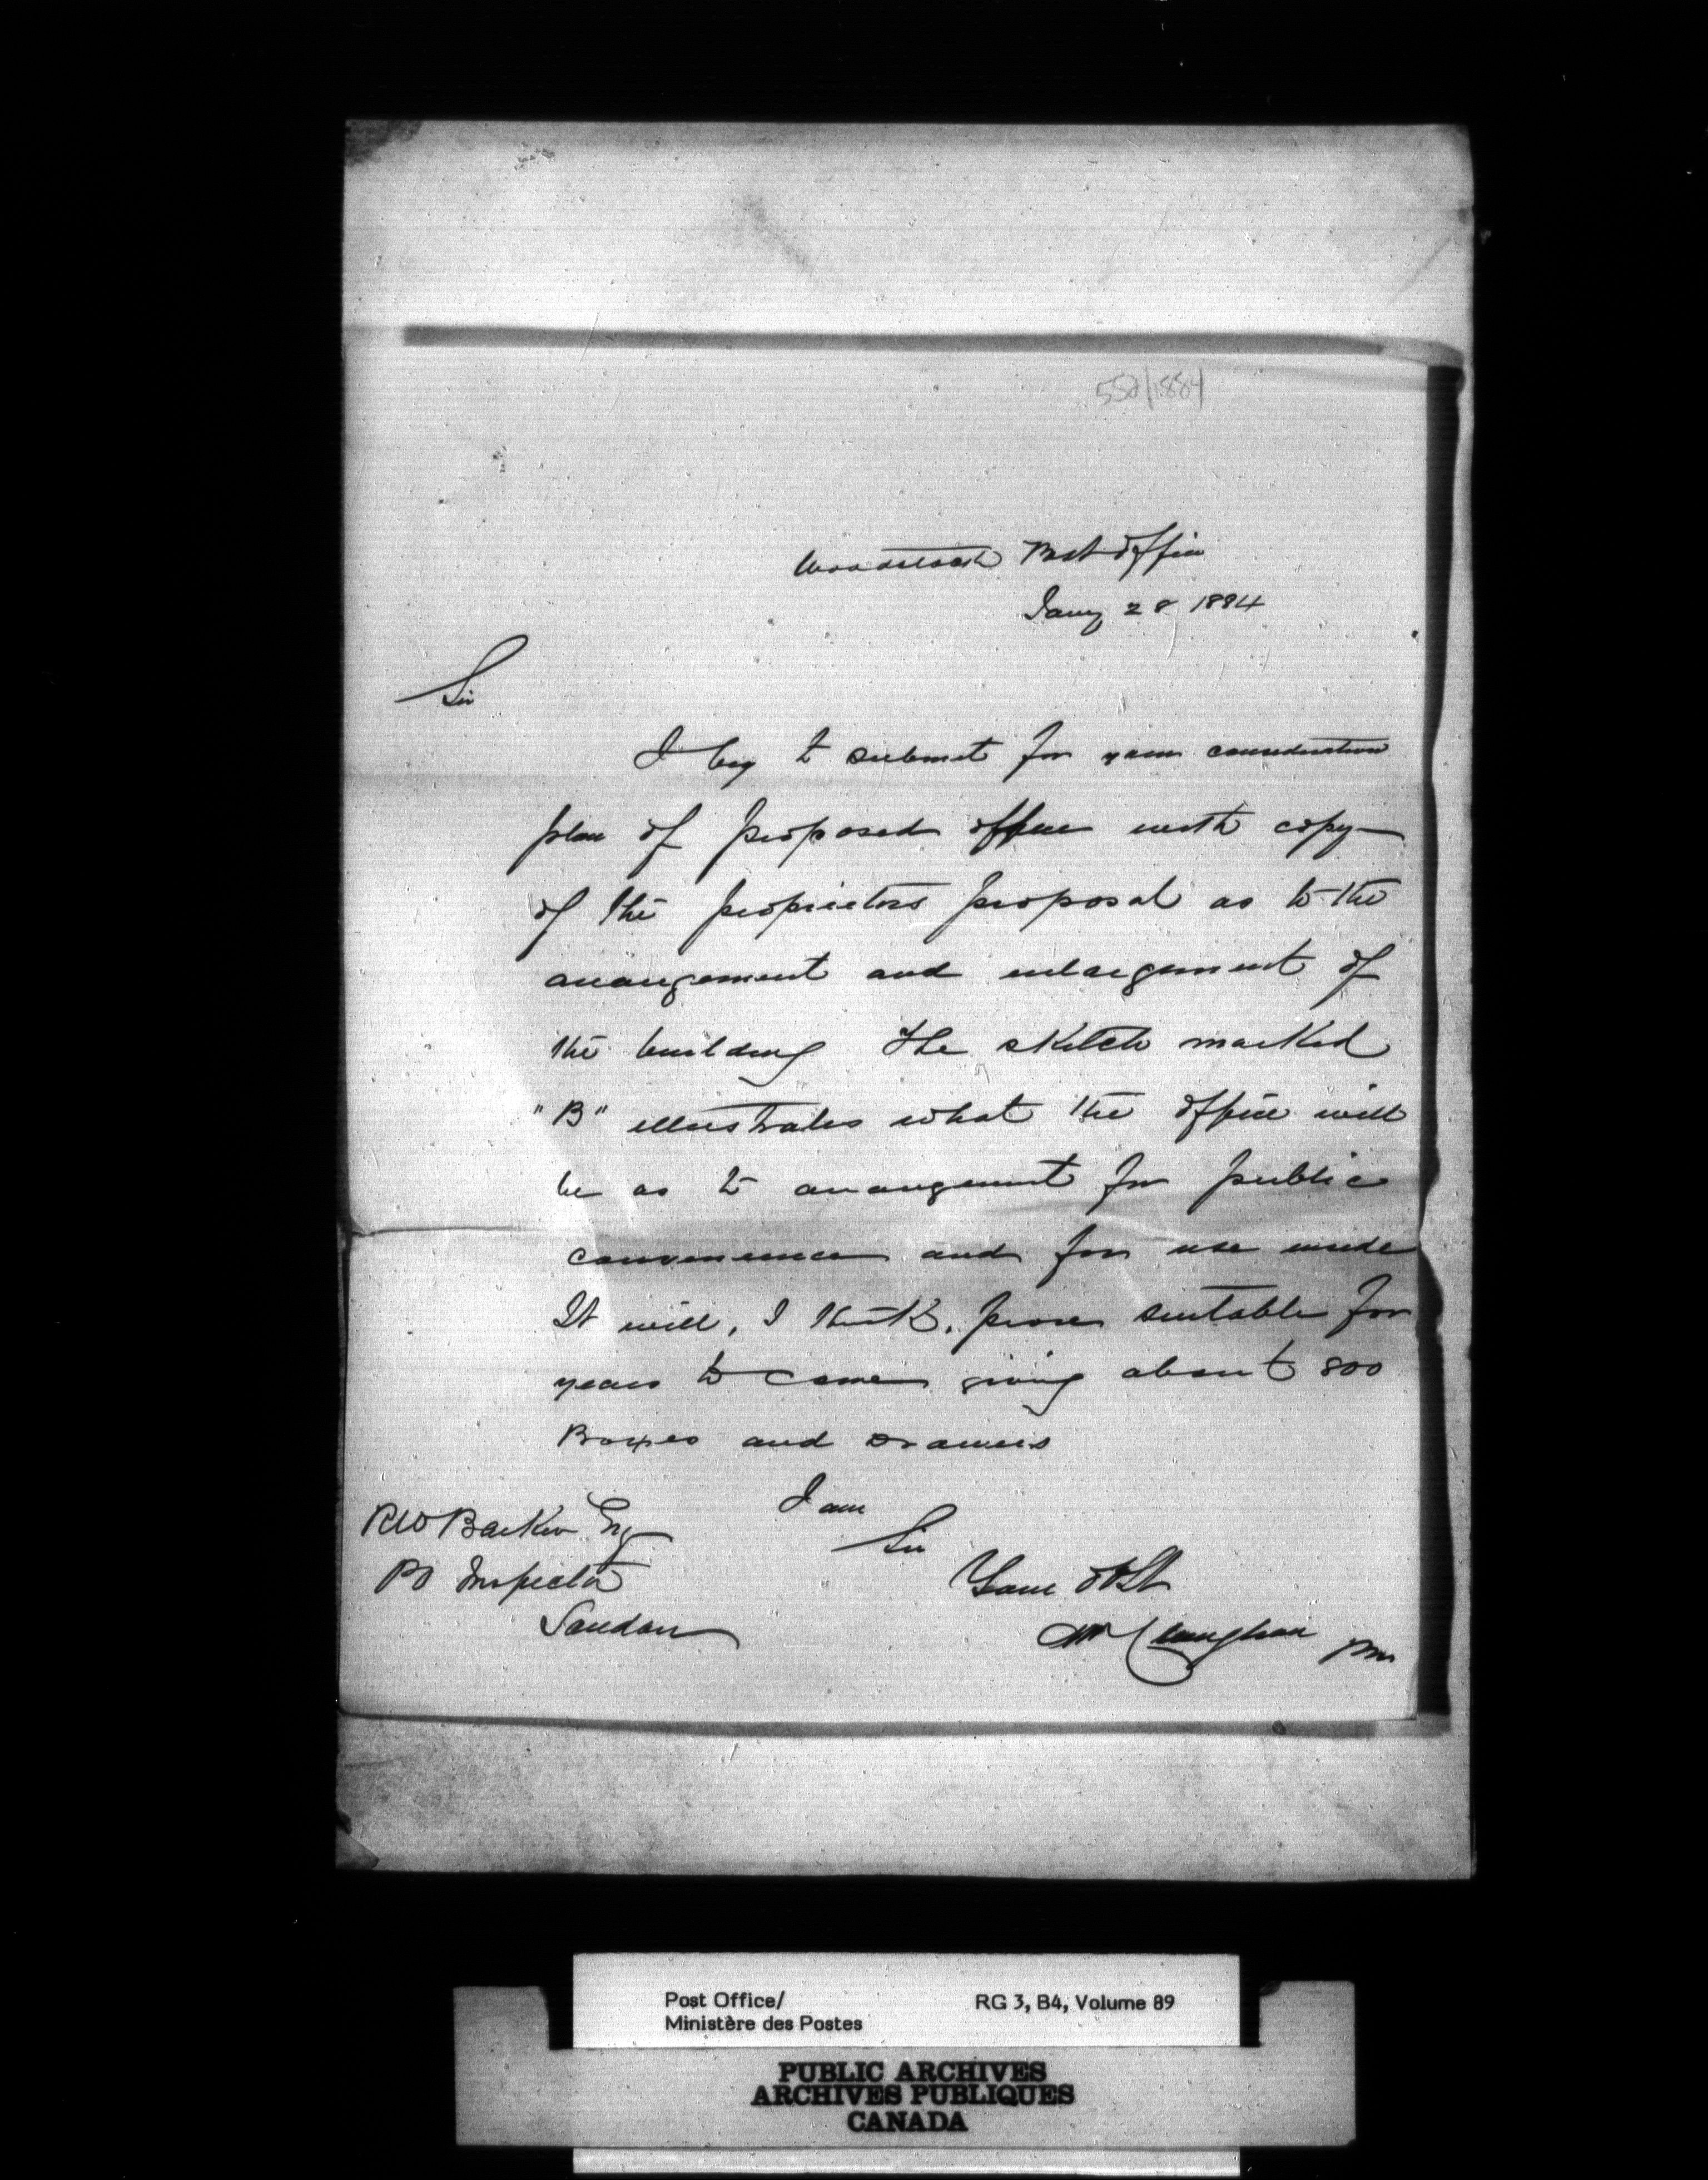 558/1884
Woodstock Post Office
Jany 28 1884
Sir
I beg to submit for your consideration
plan of proposed office with copy
of the proprietors proposal as to the
arrangement and enlargement of
the building The sketch marked
"B" illustrates what the office will
be as to arrangement for public
convenience and for use inside
It will, I think, prove suitable for
years to come giving about 800
Boxes and Drawers
I am
Sir
Your obt St
PM
RW Barker Esq
PO Inspector
London
Post Office/
Ministère des Postes
RG 3, B4, Volume 89
PUBLIC ARCHIVES
ARCHIVES PUBLIQUES
CANADA